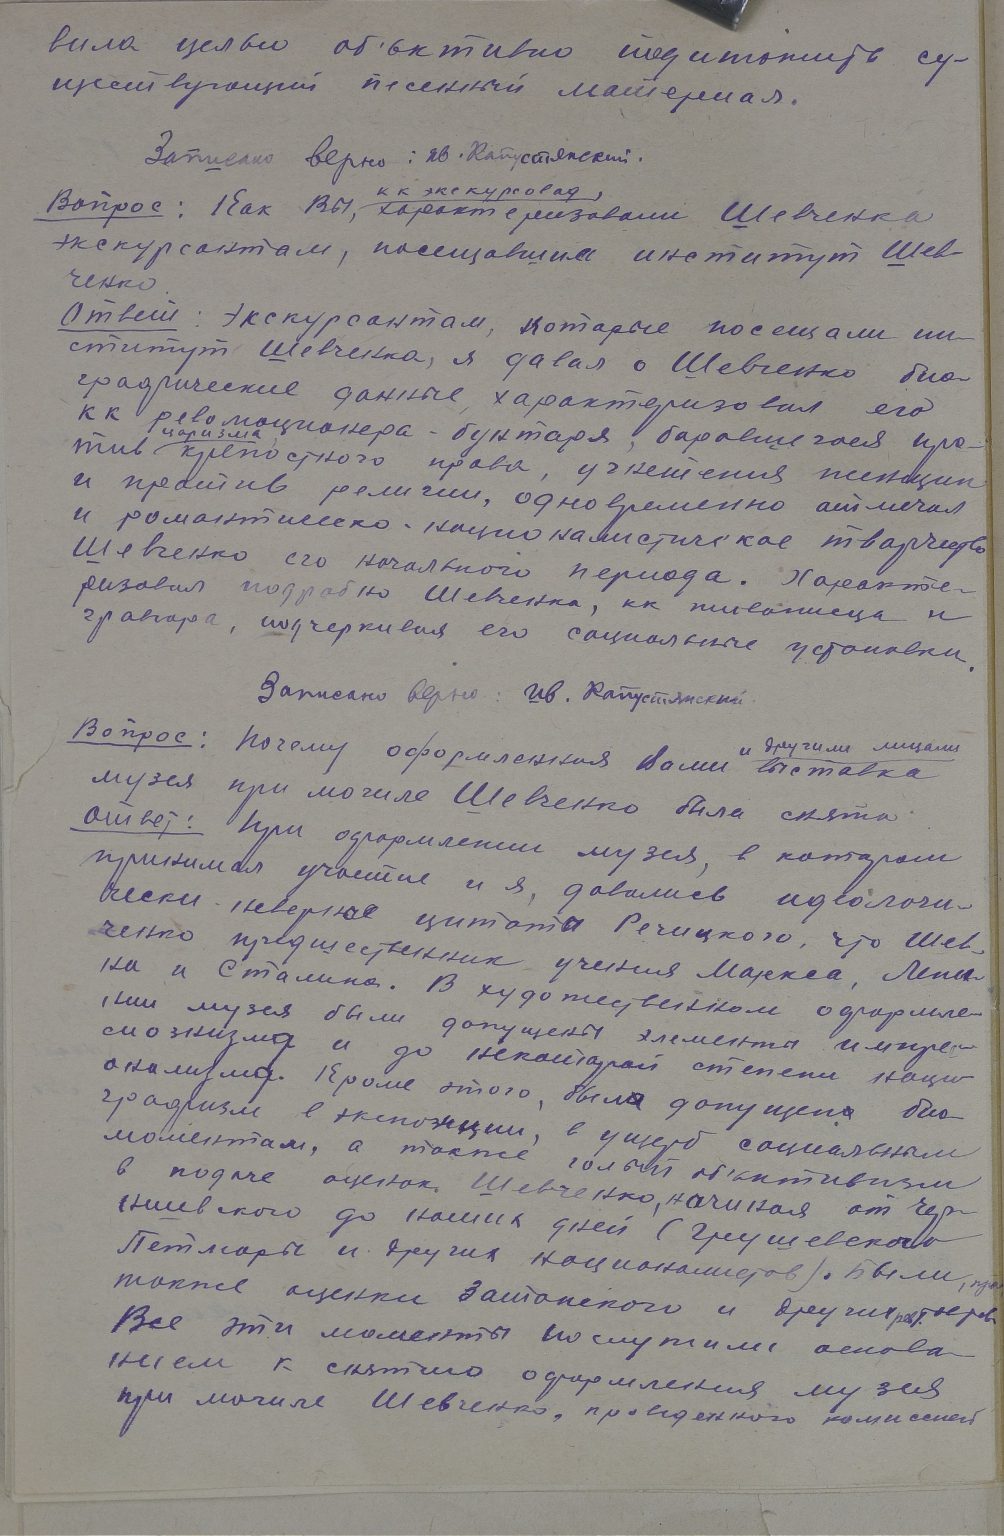 вила целью об'ъктивно подитожить су-
ществующий песенный материал.
Записано верно: Ив. Капустянский.
Вопрос: Как Вы, кк экскурсовод, характеризовали Шевченка
экскурсантам, посещавшим институт Шев-
ченко.
Ответ: Экскурсантам, которые посещали ин-
ститут Шевченка, я давал о Шевченко био-
графические данные, характеризовал его
кк революционера-бунтаря, боровшегося про-
тив царизма, крепостного права, угнетения женщин
и против религии, одновременно отмечал
и романтическо-националистическое творчество
Шевченко его начального периода. Характе-
ризовал подробно Шевченка, кк живописца и
гравера, подчеркивая его социальные установки.
Записано верно: Ив. Капустянский
Вопрос: Почему оформленная Вами и другими лицами выставка
музея при могиле Шевченко была снята
Ответ: При оформлении музея, в котором
принимал участие и я, давались идеологи-
чески-неверные цитаты Речицкого, что Шев-
ченко предшественник учения Маркса, Лени-
на и Сталина. В художественном оформле-
нии музея были допущены элементы импре-
сионизма и до некоторой степени наци-
онализма. Кроме этого, была допущена био-
графизм в экспозиции, в ущерб социальным
моментам, а также голый об'ъктивизм
в подаче оценок Шевченко, начиная от Чер-
нишевского до наших дней (Грушевского
Петлюры и других националистов). Были,
также оценки Затонского и других
Все эти моменты послужили основа-
нием к снятию оформления музея
при могиле Шевченко, проведенного комиссией